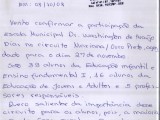 Em: 09/10/08
Venho confirmar a participação da
Escola Municipal Dr. Washington de Araújo
Dias no circuito Mariana/Ouro Preto, agen
dada para o dia 27 de novembro
São 30 alunos da Educação Infantil e
Ensino Fundamental I, 16 alunos da
Educação de Jovens e Adultos e 5 profes
sores responsáveis
Quero salientar da importância desse
circuito para os alunos, pois, a maioria